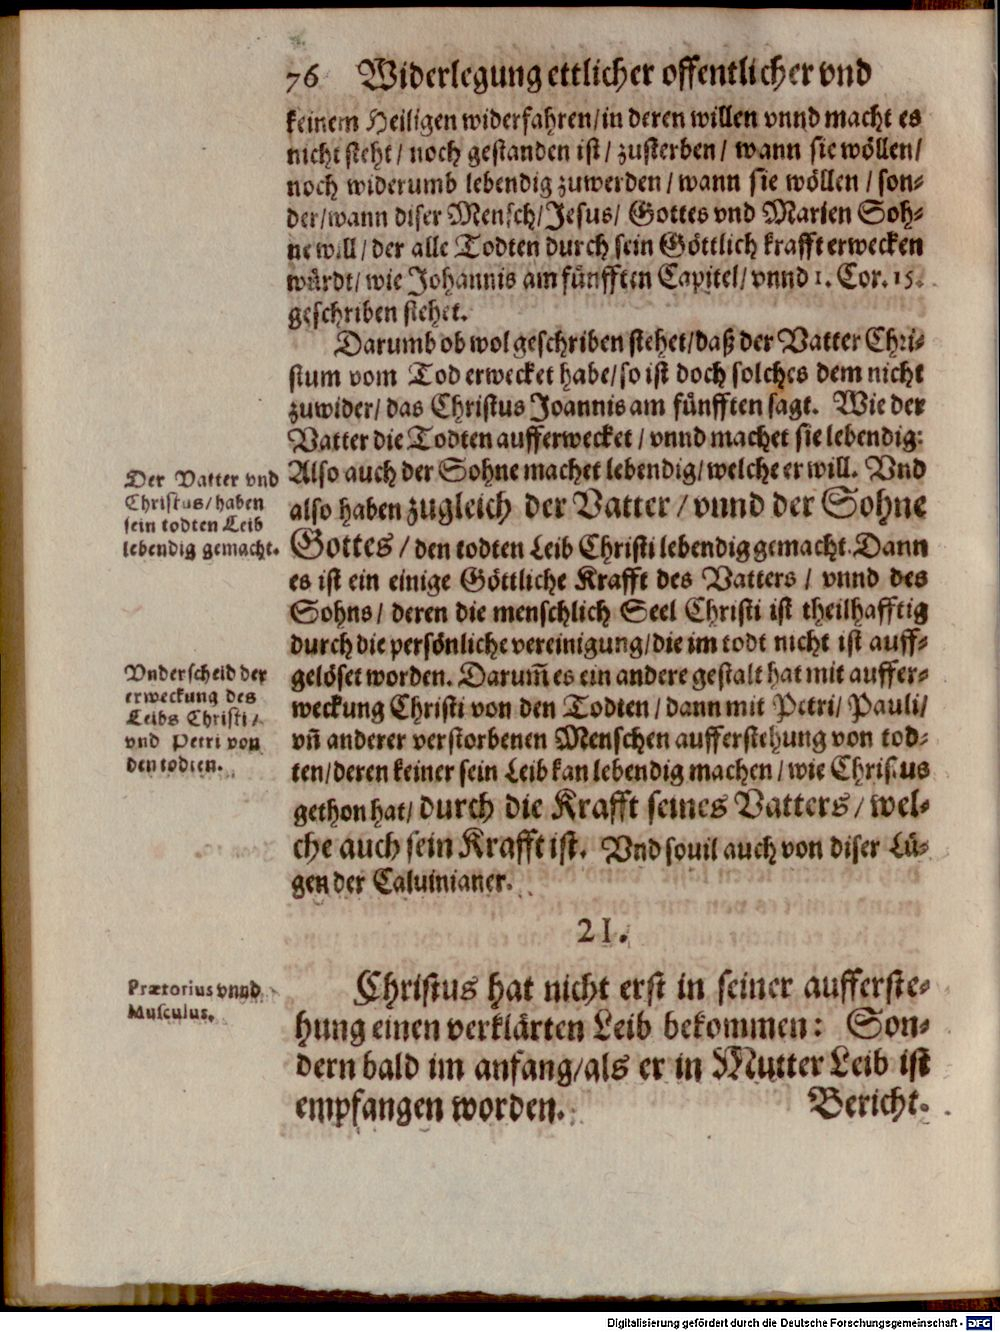 76 Widerlegung ettlicher offentlicher vnd
keinem Heiligen widerfahren/in deren willen vnnd macht es
nicht steht/ noch gestanden ist/ zusterben/ wann sie wöllen/
noch widerumb lebendig zuwerden/ wann sie wöllen/ son⸗
der/wann diser Mensch/Jesus/ Gottes vnd Marien Soh⸗
ne will/ der alle Todten durch sein Göttlich krafft erwecken
würdt/ wie Johannis am fünfften Capitel/ vnnd 1. Cor. 15.
geschriben stehet.
Darumb ob wol geschriben stehet/daß der Vatter Chri⸗
stum vom Tod erwecket habe/so ist doch solches dem nicht
zuwider/ das Christus Joannis am fünfften sagt. Wie der
Vatter die Todten aufferwecket/ vnnd machet sie lebendig:
Also auch der Sohne machet lebendig/ welche er will. Vnd
also haben zugleich der Vatter/ vnnd der Sohne
Gottes/ den todten Leib Christi lebendig gemacht. Dann
es ist ein einige Göttliche Krafft des Vatters/ vnnd des
Sohns/ deren die menschlich Seel Christi ist theilhafftig
durch die persönliche vereinigung/die im todt nicht ist auff⸗
gelöset worden. Darum̃ es ein andere gestalt hat mit auffer⸗
weckung Christi von den Todten/ dann mit Petri/ Pauli/
vn̄ anderer verstorbenen Menschen aufferstehung von tod⸗
ten/deren keiner sein Leib kan lebendig machen/ wie Christus
gethon hat/ durch die Krafft seines Vatters/ wel⸗
che auch sein Krafft ist. Vnd souil auch von diser Lü⸗
gen der Caluinianer.
Der Vatter vnd
Christus/ haben
sein todten Leib
lebendig gemacht.
Vnderscheid der
erweckung des
Leibs Christi/
vnd Petri von
den todten.
21.
Prætorius vnnd
Musculus.
Christus hat nicht erst in seiner aufferste⸗
hung einen verklärten Leib bekommen: Son⸗
dern bald im anfang/als er in Mutter Leib ist
empfangen worden. Bericht.
Digitalisierung gefördert durch die Deutsche Forschungsgemeinschaft - DFG